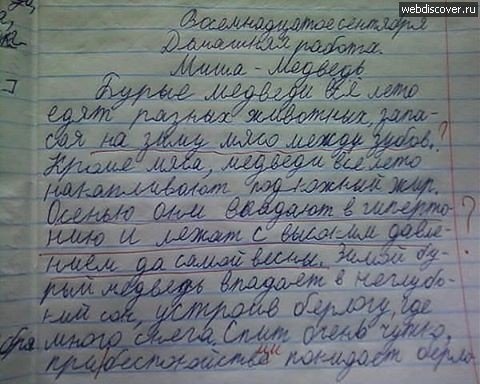 webdiscover.ru
Восемнадцатое сентября
Домашняя работа.
Миша - Медведь
Бурые медведи всё лето
едят разных животных, запа-
сая на зиму мясо между зубов. ?
Кроме мяса, медведи всё лето
накапливают подкожный жир.
Осенью они впадают в гиперто- ?
нию и лежат с высоким давле-
нием до самой весны. Зимой бу-
рый медведь впадает в неглубо-
кий сон, устроив берлогу, где
много снега. Спит очень чутко,
при беспокойстве покидает берло